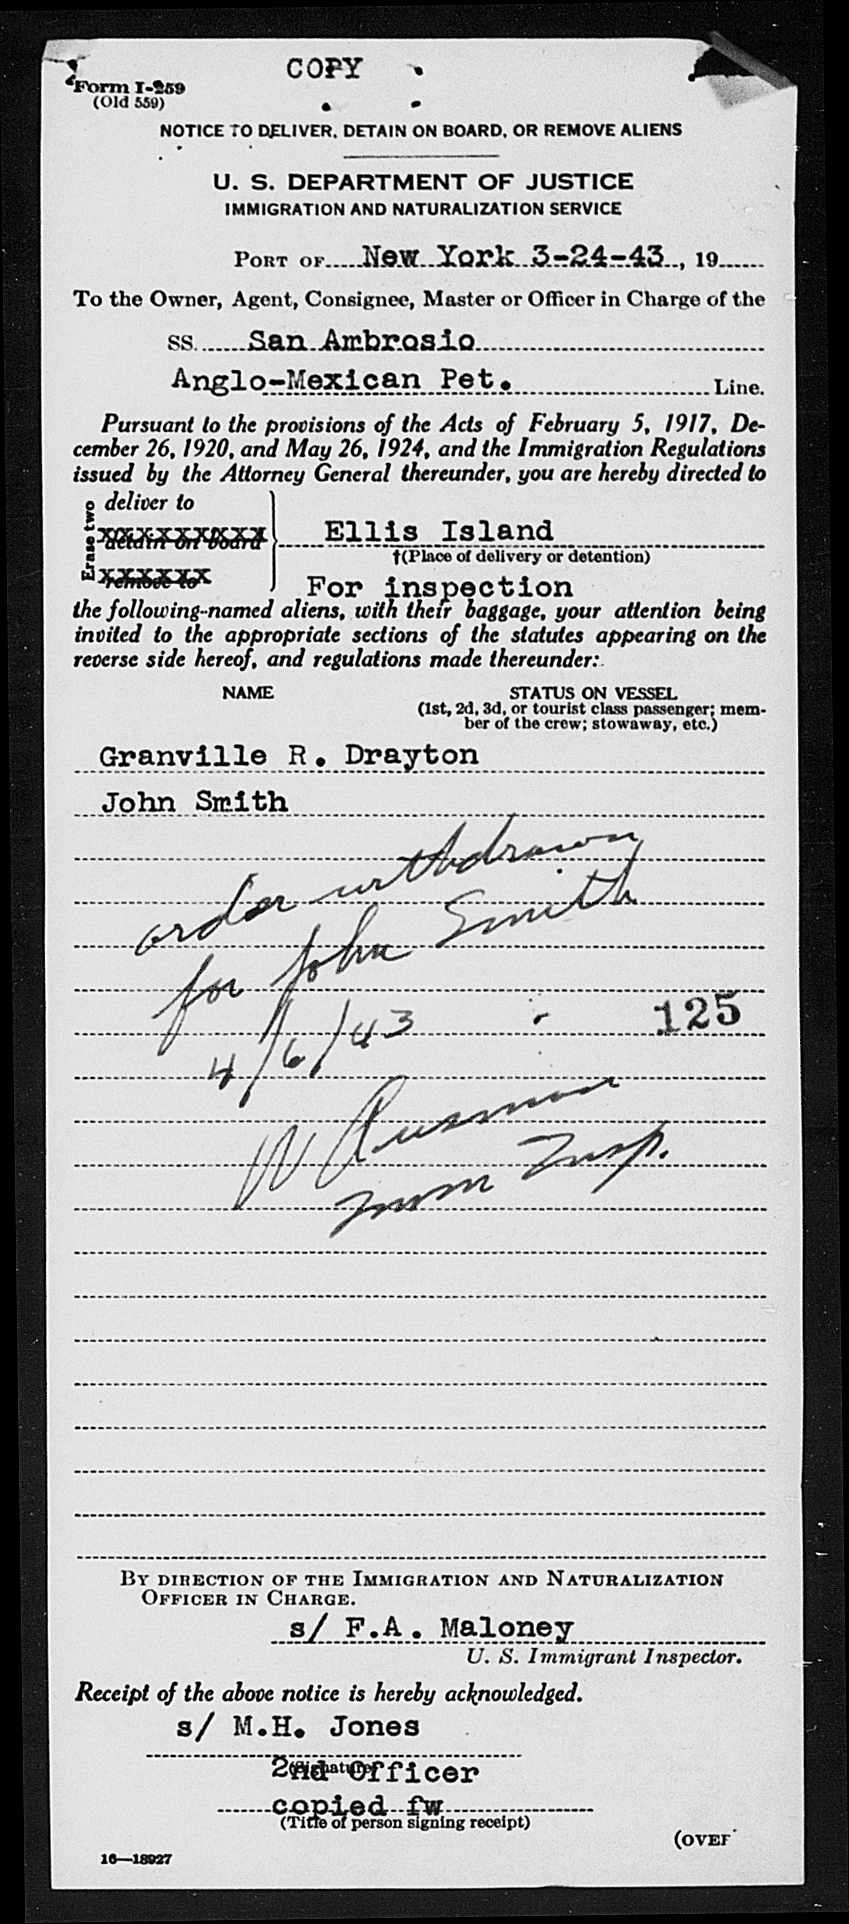 COPY
Form I-259
(Old 559)
NOTICE TO DELIVER, DETAIN ON BOARD, OR REMOVE ALIENS
U. S. DEPARTMENT OF JUSTICE
IMMIGRATION AND NATURALIZATION SERVICE
PORT OF New York 3-24-43, 19
To the Owner, Agent, Consignee, Master or Officer in Charge of the
SS. San Ambrosio
Anglo-Mexican Pet. Line.
Pursuant to the provisions of the Acts of February 5, 1917, De-
cember 26, 1920, and May 26, 1924, and the Immigration Regulations
issued by the Attorney General thereunder, you are hereby directed to
Erase two
deliver to
detain on board
remove to
Ellis Island
†(Place of delivery or detention)
For inspection
the following-named aliens, with their baggage, your attention being
invited to the appropriate sections of the statutes appearing on the
reverse side hereof, and regulations made thereunder:
NAME STATUS ON VESSEL
(1st, 2d, 3d, or tourist class passenger; mem-
ber of the crew; stowaway, etc.)
Granville R. Drayton
John Smith
order withdrawn
for John Smith
4/6/43
125
W
Imm Insp.
BY DIRECTION OF THE IMMIGRATION AND NATURALIZATION
OFFICER IN CHARGE.
s/ F.A. Maloney
U. S. Immigrant Inspector.
Receipt of the above notice is hereby acknowledged.
s/ M.H. Jones
(Signature)
2nd Officer
copied fw
(Title of person signing receipt)
(OVER
16—18927